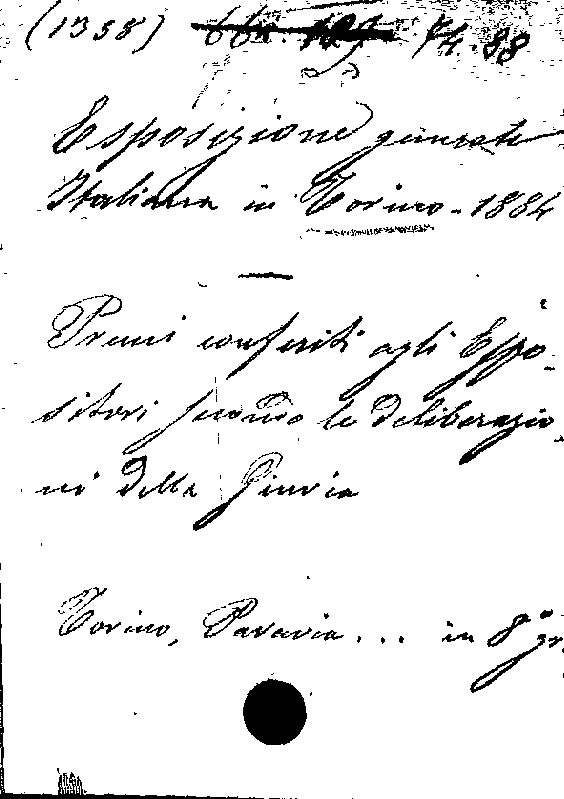 (1358) 74.88
Esposizione generale
Italiana in Torino - 1884
Premi conferiti agli Espo-
sitori secondo le deliberazio-
ni della Giuria
Torino, Paravia... in 8° gr.